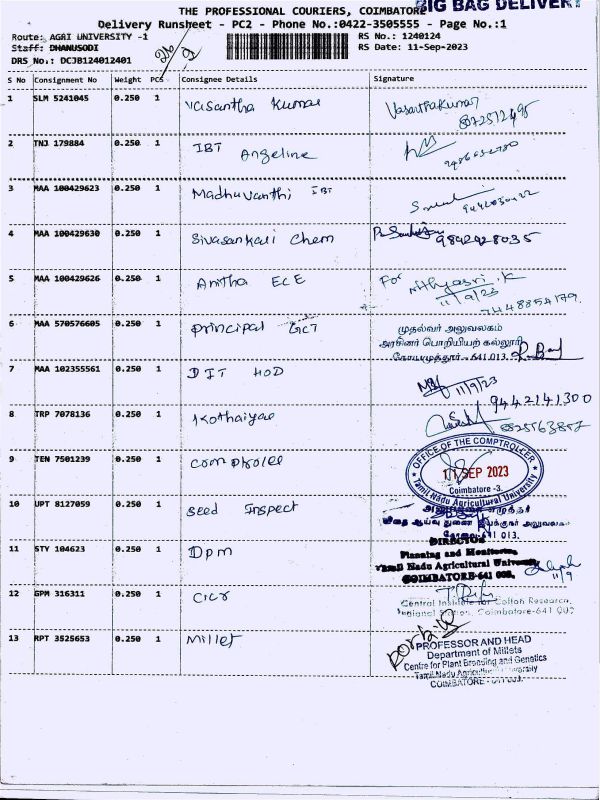 BIG BAG DELIVERY
THE PROFESSIONAL COURIERS, COIMBATORE
Delivery Runsheet - PC2 - Phone No.:0422-3505555 - Page No.:1
Route: AGRI UNIVERSITY -1
RS No.: 1240124
Staff: DHANUSODI
RS Date: 11-Sep-2023
DRS No.: DCJB124012401
S No Consignment No Weight PCS Consignee Details Signature
1 SLM 5241045 0.250 1 Vasantha Kumar Vasanthakumar
8072512495
2 TNJ 179884 0.250 1 IBT Angeline
3 MAA 100429623 0.250 1 Madhuvanthi IBT
4 MAA 100429630 0.250 1 Sivasankari Chem 9842428035
5 MAA 100429626 0.250 1 Anitha ECE For Nithyasri.K
11/9/23
7448854179
6 MAA 570576605 0.250 1 principal GCT முதல்வர் அலுவலகம்
அரசினர் பொறியியற் கல்லூரி
கோயமுத்தூர் - 641 013.
7 MAA 102355561 0.250 1 DIT HOD 11/9/23
9442141300
8 TRP 7078136 0.250 1 Kothaiyae 8825563857
9 TEN 7501239 0.250 1 comptroller OFFICE OF THE COMPTROLLER
11 SEP 2023
Coimbatore -3.
Tamil Nadu Agricultural University
10 UPT 8127059 0.250 1 seed Inspect
விதை ஆய்வு துணை இயக்குநர் அலுவலகம்
கோவை-641 013.
11 STY 104623 0.250 1 Dpm DIRECTOR
Planning and Monitoring
Tamil Nadu Agricultural University
COIMBATORE-641 003.
11/9
12 GPM 316311 0.250 1 CICR
Central Institute for Cotton Research,
Regional Station, Coimbatore-641 003
13 RPT 3525653 0.250 1 Millet
PROFESSOR AND HEAD
Department of Millets
Centre for Plant Breeding and Genetics
Tamil Nadu Agricultural University
COIMBATORE - 641 003.